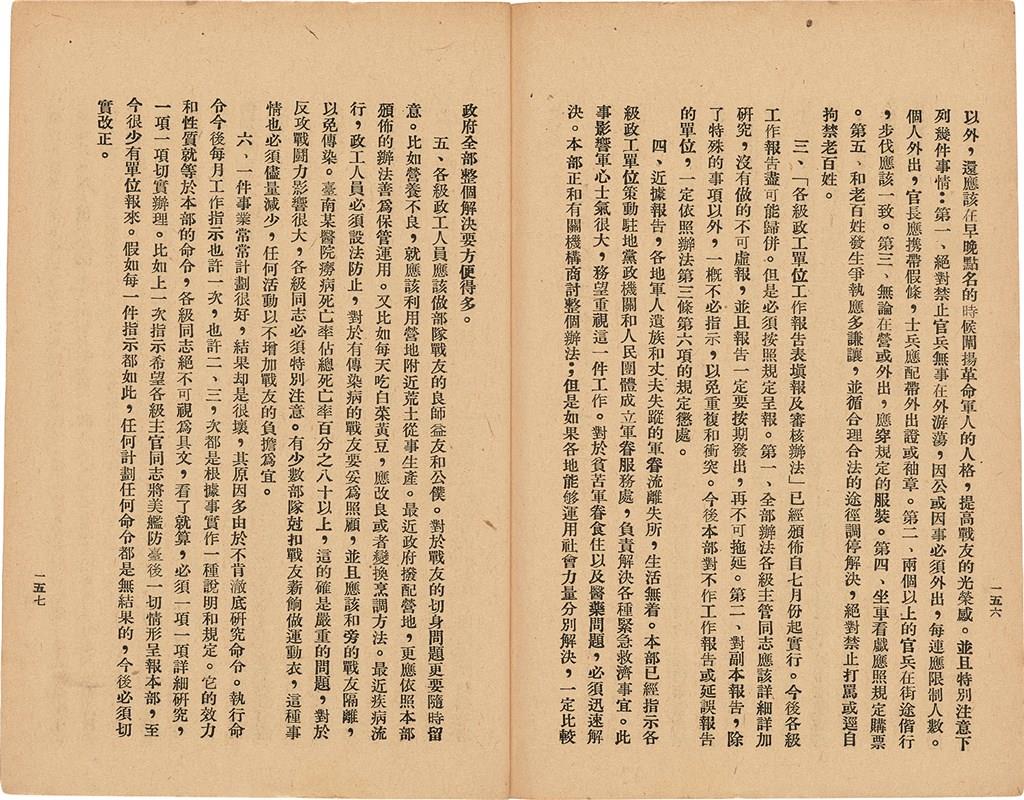 以外，還應該在早晚點名的時候闡揚革命軍人的人格，提高戰友的光榮感。並且特別注意下
列幾件事情：第一、絕對禁止官兵無事在外游蕩，因公或因事必須外出，每連應限制人數。
個人外出，官長應携帶假條，士兵應配帶外出證或袖章。第二、兩個以上的官兵在街途偕行
，步伐應該一致。第三、無論在營或外出，應穿規定的服裝。第四、坐車看戲應照規定購票
。第五、和老百姓發生爭執應多謙讓，並循合理合法的途徑調停解決，絕對禁止打罵或逕自
拘禁老百姓。
三、「各級政工單位工作報告表塡報及審核辦法」已經頒佈自七月份起實行。今後各級
工作報告盡可能歸併。但是必須按照規定呈報。第一、全部辦法各級主管同志應該詳細詳加
研究，沒有做的不可虛報，並且報告一定要按期發出，再不可拖延。第二、對副本報告，除
了特殊的事項以外，一槪不必指示，以免重複和衝突。今後本部對不作工作報告或延誤報告
的單位，一定依照辦法第三條第六項的規定懲處。
四、近據報告，各地軍人遺族和丈夫失蹤的軍眷流離失所，生活無着。本部已經指示各
級政工單位策動駐地黨政機關和人民團體成立軍眷服務處，負責解決各種緊急救濟事宜。此
事影響軍心士氣很大，務望重視這一件工作。對於貧苦軍眷食住以及醫藥問題，必須迅速解
決。本部正和有關機構商討整個辦法；但是如果各地能够運用社會力量分別解決，一定比較
一五六
政府全部整個解決要方便得多。
五、各級政工人員應該做部隊戰友的良師益友和公僕。對於戰友的切身問題更要隨時留
意。比如營養不良，就應該利用營地附近荒土從事生產。最近政府撥配營地，更應依照本部
頒佈的辦法善爲保管運用。又比如每天吃白菜黃豆，應改良或者變換烹調方法。最近疾病流
行，政工人員必須設法防止，對於有傳染病的戰友要妥爲照顧，並且應該和旁的戰友隔離，
以免傳染。臺南某醫院癆病死亡率佔總死亡率百分之八十以上，這的確是嚴重的問題，對於
反攻戰鬪力影響很大，各級同志必須特別注意。有少數部隊尅扣戰友薪餉做運動衣，這種事
情也必須儘量減少，任何活動以不增加戰友的負擔爲宜。
六、一件事業常常計劃很好，結果却是很壞，其原因多由於不肯澈底硏究命令。執行命
令今後每月工作指示也許一次，也許二、三，次都是根據事實作一種說明和規定。它的效力
和性質就等於本部的命令，各級同志絕不可視爲具文，看了就算，必須一項一項詳細硏究，
一項一項切實辦理。比如上一次指示希望各級主官同志將美艦防臺後一切情形呈報本部，至
今很少有單位報來。假如每一件指示都如此，任何計劃任何命令都是無結果的，今後必須切
實改正。
一五七